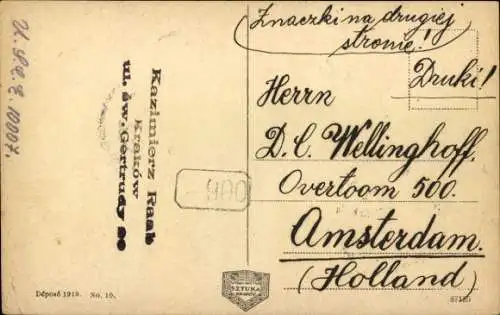 Znaczki na drugiej
stronie!
Druki!
Herrn
D. C. Wellinghoff.
Overtoom 500.
Amsterdam.
(Holland)
Kazimierz Raab
Kraków
ul. św. Gertrudy
900
Déposé 1918. No. 10.
SZTUKA